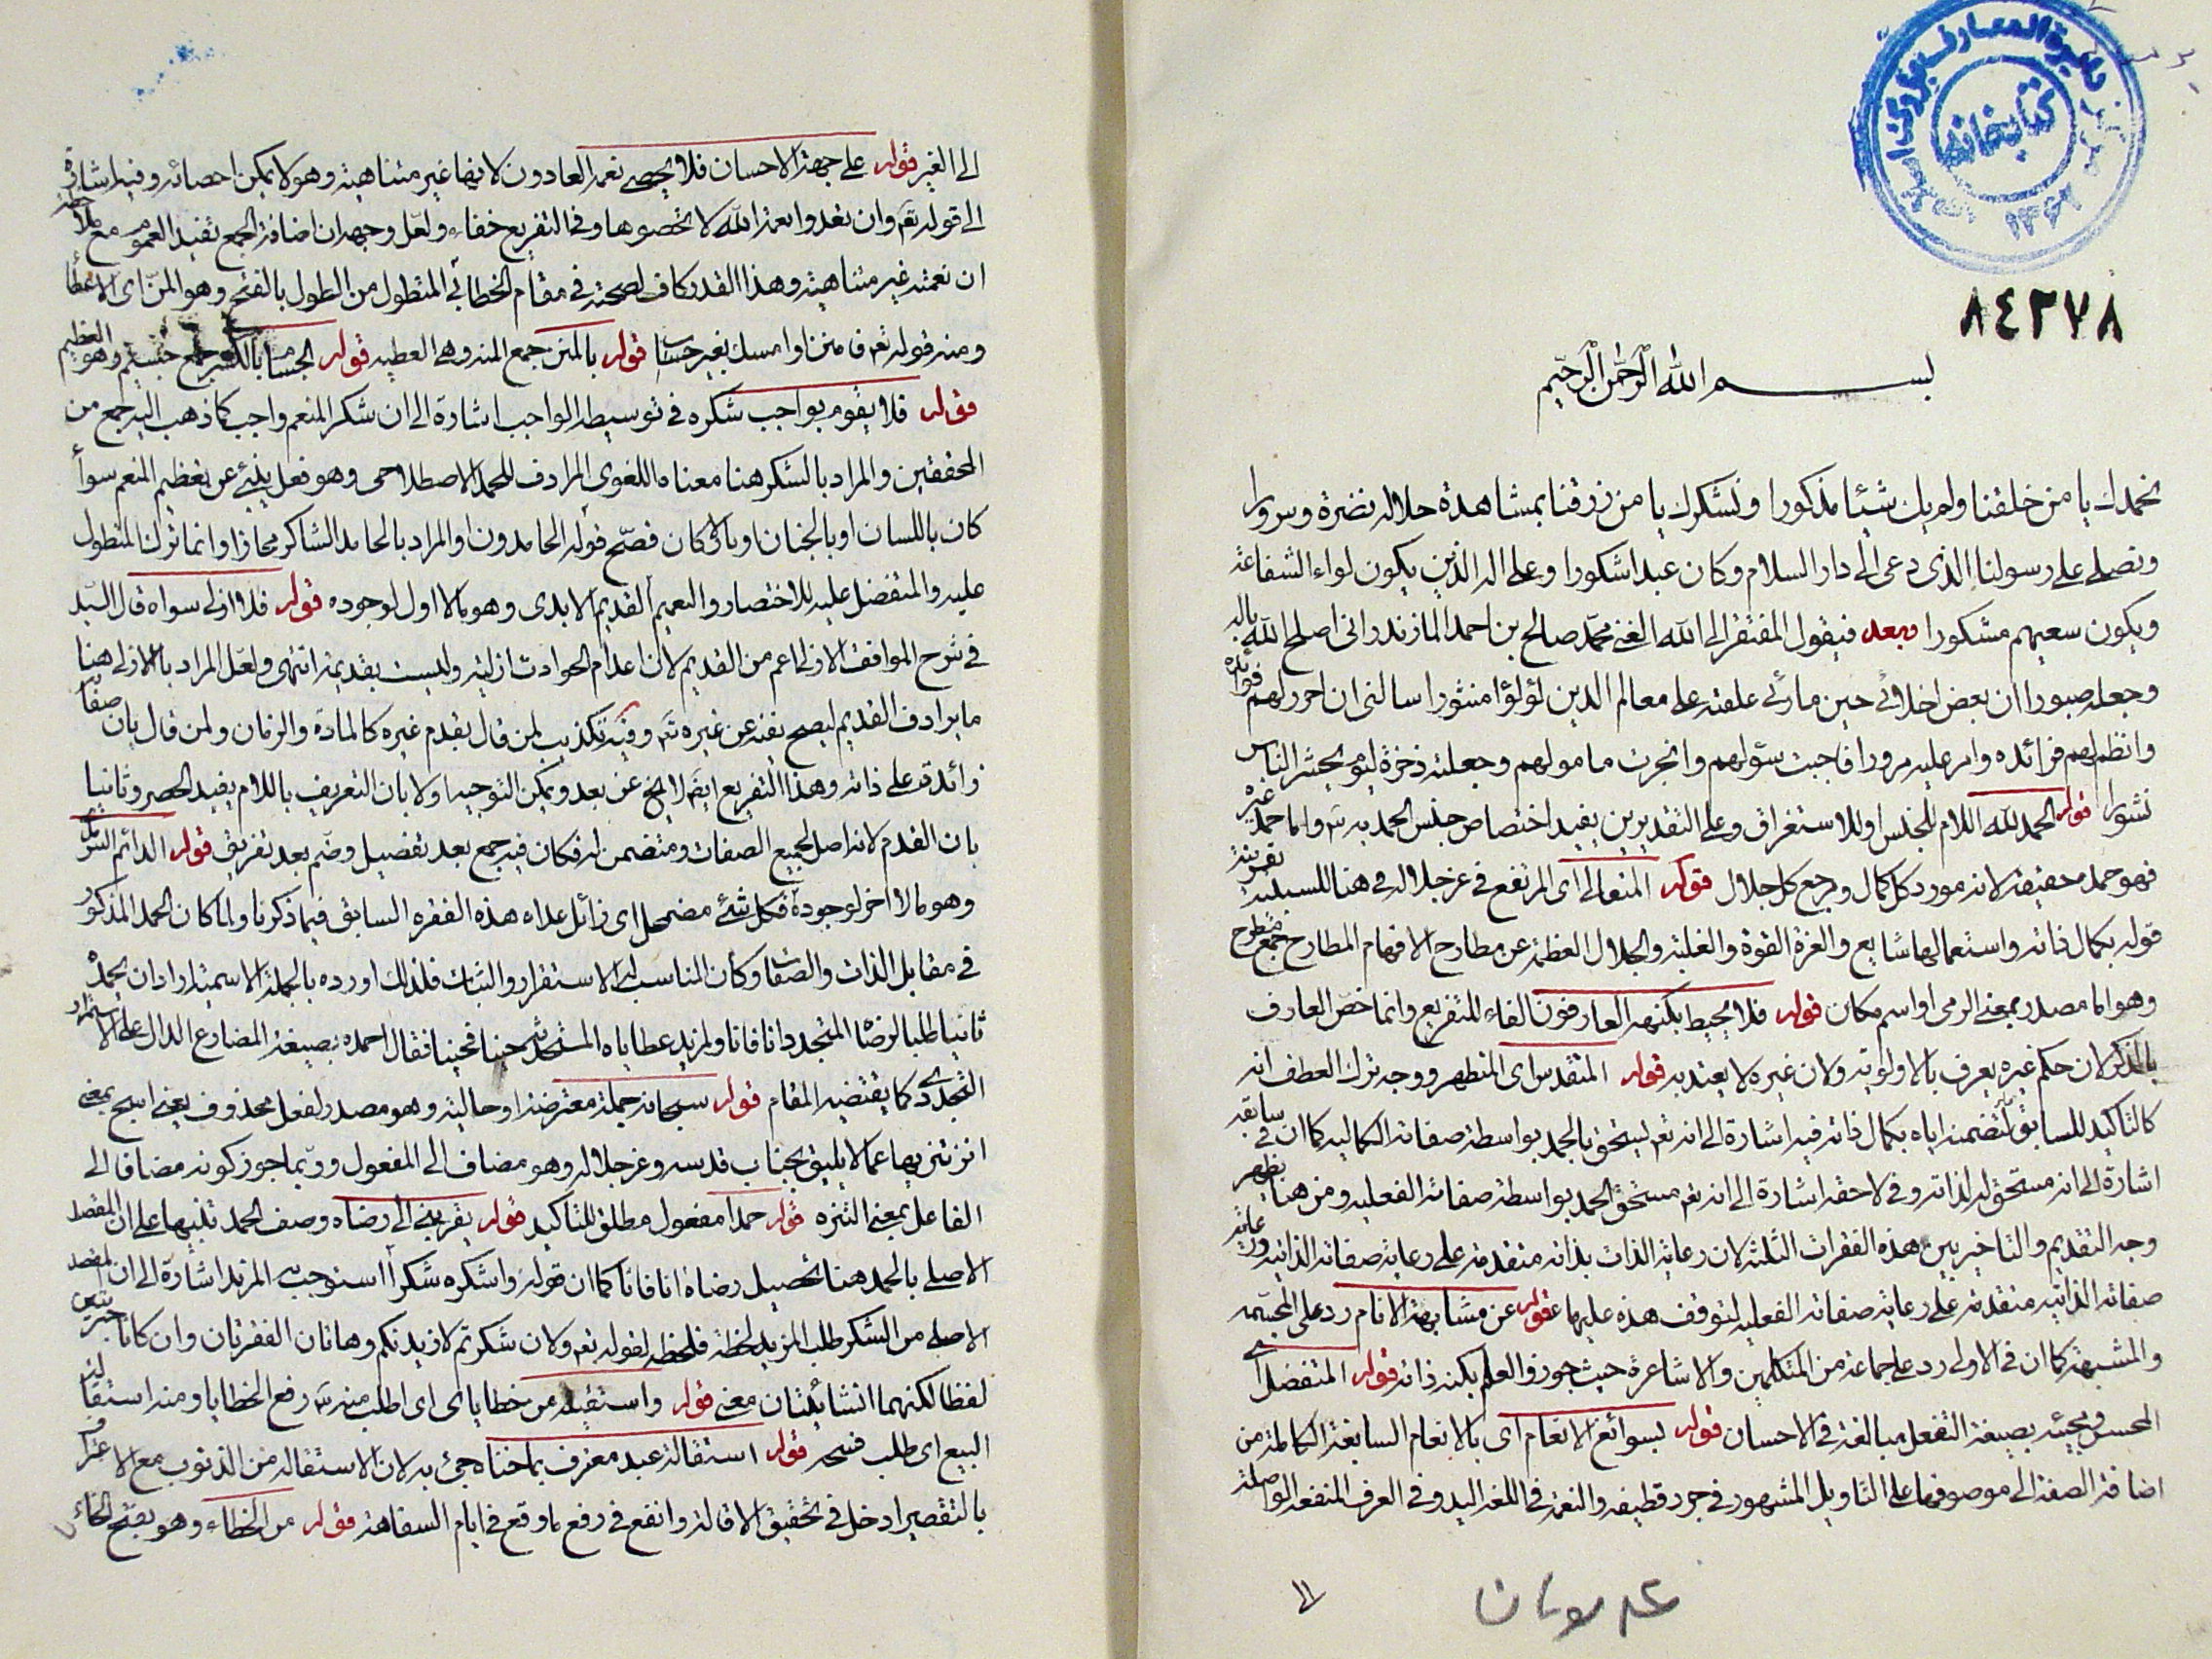 كتابخانه
١٣٦٢
٨٤٣٧٨
بسم الله الرحمن الرحيم
نحمدك يا من خلقنا ولم يك شيئا مذكورا ونشكرك يا من زرقنا بمشاهدة جلاله نضرة وسرورا
ونصلى على رسولنا الذى دعى الى دار السلام وكان عبدا شكورا وعلى اله الذين يكون لواء الشفاعة
ويكون سعيهم مشكورا وبعد فيقول المفتقر الى الله الغنى محمد صالح بن احمد المازندرانى اصلح الله باله
وجعله صبورا ان بعض اخلائى حين ما رائى علقته على معالم الدين لؤلؤا منثورا سالنى ان احرر لهم فوائده
وانظم لهم فرائده وامر عليه مرورا فاجبت سؤلهم وانجزت مامولهم وجعلته ذخرة ليوم يحشر الناس
نشورا قوله الحمد لله اللام للجنس او للاستغراق وعلى التقديرين يفيد اختصاص جنس الحمد به تع واما حمد غيره
فهو حمده حقيقة لانه مورد كل كمال ومرجع كل جلال قوله المتعالى اى المرتفع فى عز جلاله فى هنا للسببية بقرينة
قوله بكمال ذاته واستعمالها شايع والعزة القوة والغلبة والجلال العظمة عن مطارح الافهام المطارح جمع مطرح
وهو اما مصدر بمعنى الرمى او اسم مكان قوله فلا يحيط بكنهه العارفون الفاء للتفريع وانما خص العارف
بالذكر لان حكم غيره يعرف بالاولوية ولان غيره لا يعتد به قوله المتقدس اى المتطهر ووجه ترك العطف انه
كالتاكيد للسابق لتضمنه اياه بكمال ذاته فيه اشارة الى انه تع يستحق بالحمد بواسطة صفاته الكمالية كما ان فى سابقه
اشارة الى انه مستحق له لذاته وفى لاحقه اشارة الى انه تع مستحق الحمد بواسطة صفاته الفعلية ومن هنا يظهر
وجه التقديم والتاخير بين هذه الفقرات الثلثة لان رعاية الذات بذاته متقدمة على رعاية صفاته الذاتية ورعاية
صفاته الذاتية متقدمة على رعاية صفاته الفعلية لتوقف هذه عليها قوله عن مشابهة الانام رد على المجسمة
والمشبهة كما ان فى الاولى رد على جماعة من المتكلمين والاشاعرة حيث جوزوا العلم بكنه ذاته قوله المتفضل اى
المحسن ومجيئه بصيغة التفعل مبالغة فى الاحسان قوله بسوابغ الانعام اى بالانعام السابغة الكاملة من
اضافة الصفة الى موصوفها على التاويل المشهور فى جرد قطيفة والنعمة فى اللغة اليد وفى العرف المنفعة الواصلة
الى الغير قوله على جهة الاحسان فلا يحصى نعمه العادون لانها غير متناهية وهو لا يمكن احصائه وفيه اشارة
الى قوله تع وان تعدوا نعمة الله لا تحصوها وفى التفريع خفاء ولعل وجهه ان اضافة الجمع تفيد العموم مع ملاحظة
ان نعمته غير متناهية وهذا القدر كاف لصحته فى مقام الخطابى المتطول من الطول بالفتح وهو المن اى الاعطا
ومنه قوله تع فامنن او امسك بغير حساب قوله بالمنن جمع المنة وهى العطية قوله الجسام بالكسر جمع جسيم وهو العظيم
قوله فلا يقوم بواجب شكره فى توسيط الواجب اشارة الى ان شكر المنعم واجب كما ذهب اليه جمع من
المحققين والمراد بالشكر هنا معناه اللغوى المرادف للحمد الاصطلاحى وهو فعل ينبئ عن تعظيم المنعم سوأ
كان باللسان او بالجنان او بالاركان فصح قوله الحامدون او المراد بالحامد الشاكر مجازا وانما ترك المتطول
عليه والمتفضل عليه للاختصار والتعميم القديم الابدى وهو ما لا اول لوجوده قوله فلا ازلى سواه قال السيد
فى شرح المواقف الازلى اعم من القديم لان اعدام الحوادث ازلية وليست بقديمة انتهى ولعل المراد بالازلى هنا
ما يرادف القديم ليصح نفيه عن غيره تع وفيه تكذيب لمن قال بقدم غيره كالمادة والزمان ولمن قال بان صفاته
زائدة على ذاته وهذا التفريع ايضا لا يخ عن بعد ويمكن التوجيه اولا بان التعريف باللام يفيد الحصر وثانيا
بان القدم لانه اصل لجميع الصفات ومتضمن له فكان فيه جمع بعد تفصيل وضم بعد تفريق قوله الدائم السرمدى
وهو ما لا اخر لوجوده فكل شئ مضمحل اى زائل عداه هذه الفقره السابق فيما ذكرنا ولما كان الحمد المذكور
فى مقابل الذات والصفات وكان المناسب له الاستقرار والثبات فلذلك اورده بالجملة الاسمية اراد ان يحمده
ثانيا طلبا لرضاه المتجدد انا فانا ولمزيد عطاياه المستحدثة حينا فحينا فقال احمده بصيغة المضارع الدال على الاستمرار
التجددى كما يقتضيه المقام قوله سبحانه جملة معترضة او حالية وهو مصدر لفعل محذوف يعنى اسبح بمعنى
انزه تنزيها عما لا يليق بجناب قدسه وعز جلاله وهو مضاف الى المفعول وربما جوز كونه مضافا الى
الفاعل بمعنى التنزه قوله حمدا مفعول مطلق للتاكيد قوله يقربنى الى رضاه وصف الحمد تنبيها على ان المقصد
الاصلى بالحمد هنا تحصيل رضاه انا فانا كما ان قوله واشكره شكرا استوجب به المزيد اشارة الى ان المقصد
الاصلى من الشكر طلب المزيد لحظة فلحظة لقوله تع ولان شكرتم لازيدنكم وهاتان الفقرتان وان كانا خبريتين
لفظا لكنهما انشائيتان معنى قوله واستقيله من خطاياى اى اطلب منه تع رفع الخطايا ومنه استقالة
البيع اى طلب فسخه قوله استقالة عبد معترف بما جناه جئ به لان الاستقالة من الذنوب مع الاعتراف
بالتقصير ادخل فى تحقيق الاقالة وانفع فى رفع ما وقع فى ايام السفاهة قوله من الخطاء وهو بفتح الخاء